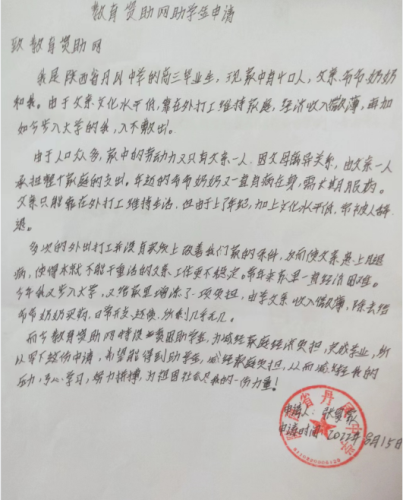 教育资助网助学金申请
致教育资助网
我是陕西省丹凤中学的高三毕业生,现家中有4口人,父亲、爷爷、奶奶
和我。由于父亲文化水平低,靠在外打工维持家庭,经济收入微薄,再加
如今步入大学的我,入不敷出。
由于人口众多,家中的劳动力又只有父亲一人,因父母离异关系,由父亲一人
承担整个家庭的支出。年迈的爷爷奶奶又一直身病在身,需长期服药。
父亲只能靠在外打工维持生活,但由于上了年纪,加上文化水平低,常被人辞
退。
多次的外出打工并没有实际上改善我们家的条件,反而使父亲患上了腿
病,使得本就不能干重活的父亲工作更不稳定。常年来家里一直经济困难。
今年我又步入大学,又给家里增添了一项负担,由于父亲收入微薄,除去给
爷爷奶奶买药,日常开支,
而今教育资助网特设助学金,为减轻家庭经济负担,完成学业,所
以写下这份申请,希望能得到助学金,减轻家庭负担,从而减轻我的
压力,多心学习,努力拼搏,为祖国社会尽我的一份力量!
申请人:张
申请时间:2022年8月15日